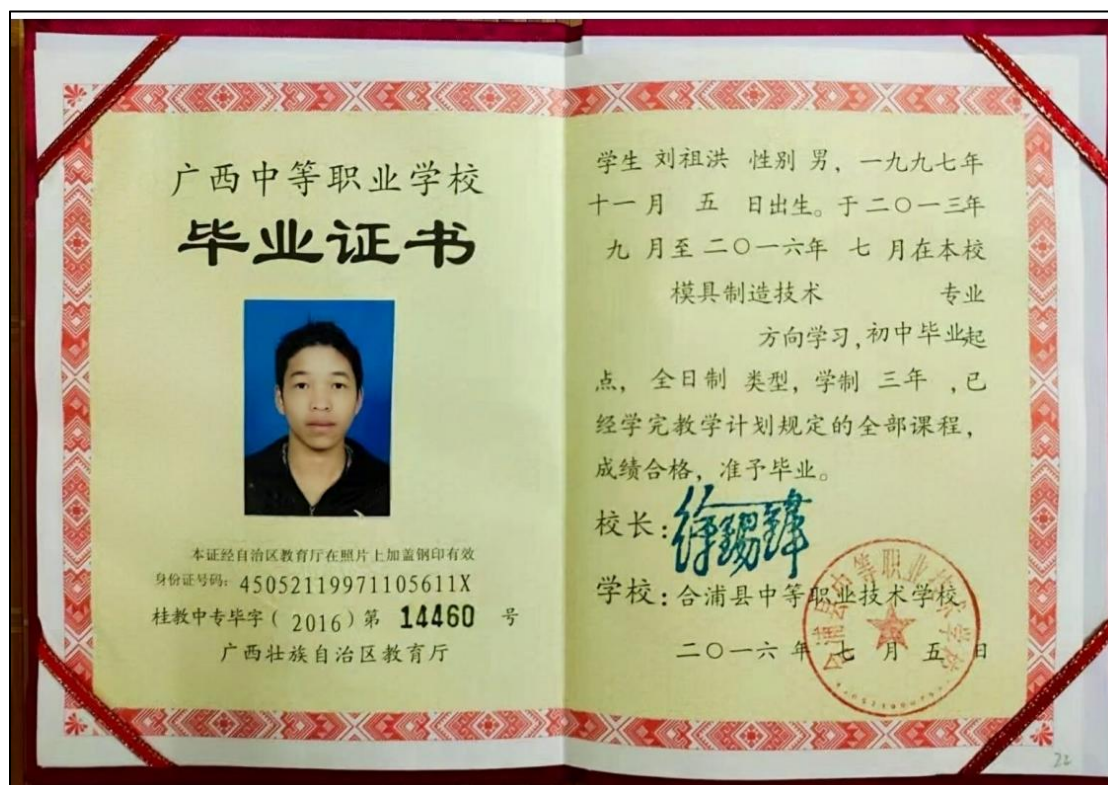 广西中等职业学校
毕业证书
本证经自治区教育厅在照片上加盖钢印有效
身份证号码: 45052119971105611X
桂教中专毕字(2016)第 14460 号
广西壮族自治区教育厅
学生 刘祖洪 性别 男, 一九九七年
十一月 五 日出生。于二〇一三年
九 月至二〇一六年 七 月在本校
模具制造技术 专业
方向学习,初中毕业起
点, 全日制 类型, 学制 三年 ,已
经学完教学计划规定的全部课程,
成绩合格, 准予毕业。
校长: 徐锡锋
学校: 合浦县中等职业技术学校
二〇一六 年 七 月 五 日
合浦县中等职业技术学校
22